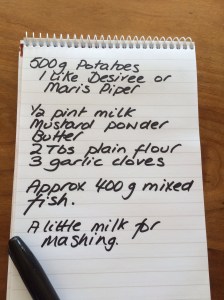 500g Potatoes
I like Desiree or
Maris Piper
½ pint milk
Mustard powder
Butter
2 Tbs plain flour
3 garlic cloves
Approx 400g mixed
fish.
A little milk for
mashing.